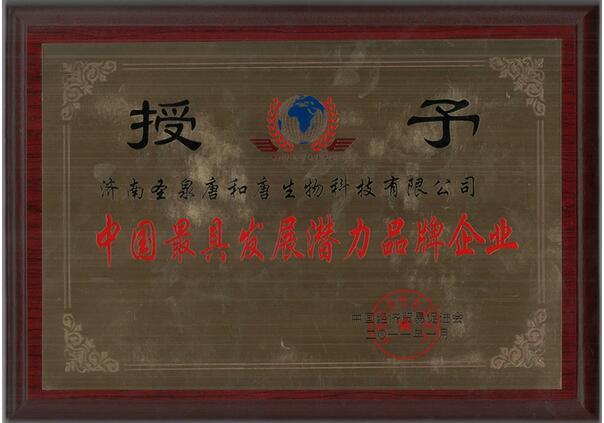 授予
济南圣泉唐和唐生物科技有限公司
中国最具发展潜力品牌企业
中国经济贸易促进会
二〇一一年一月